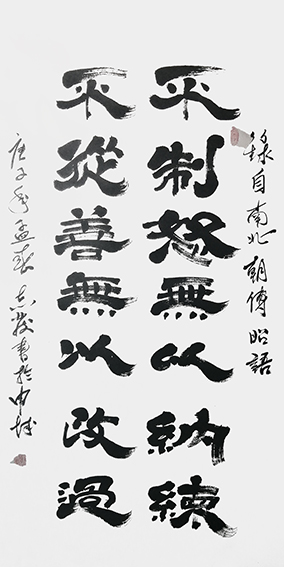 錄自南北朝傅昭語
不制怒無以納諫
不從善無以改過
庚子年孟春志發書於申城